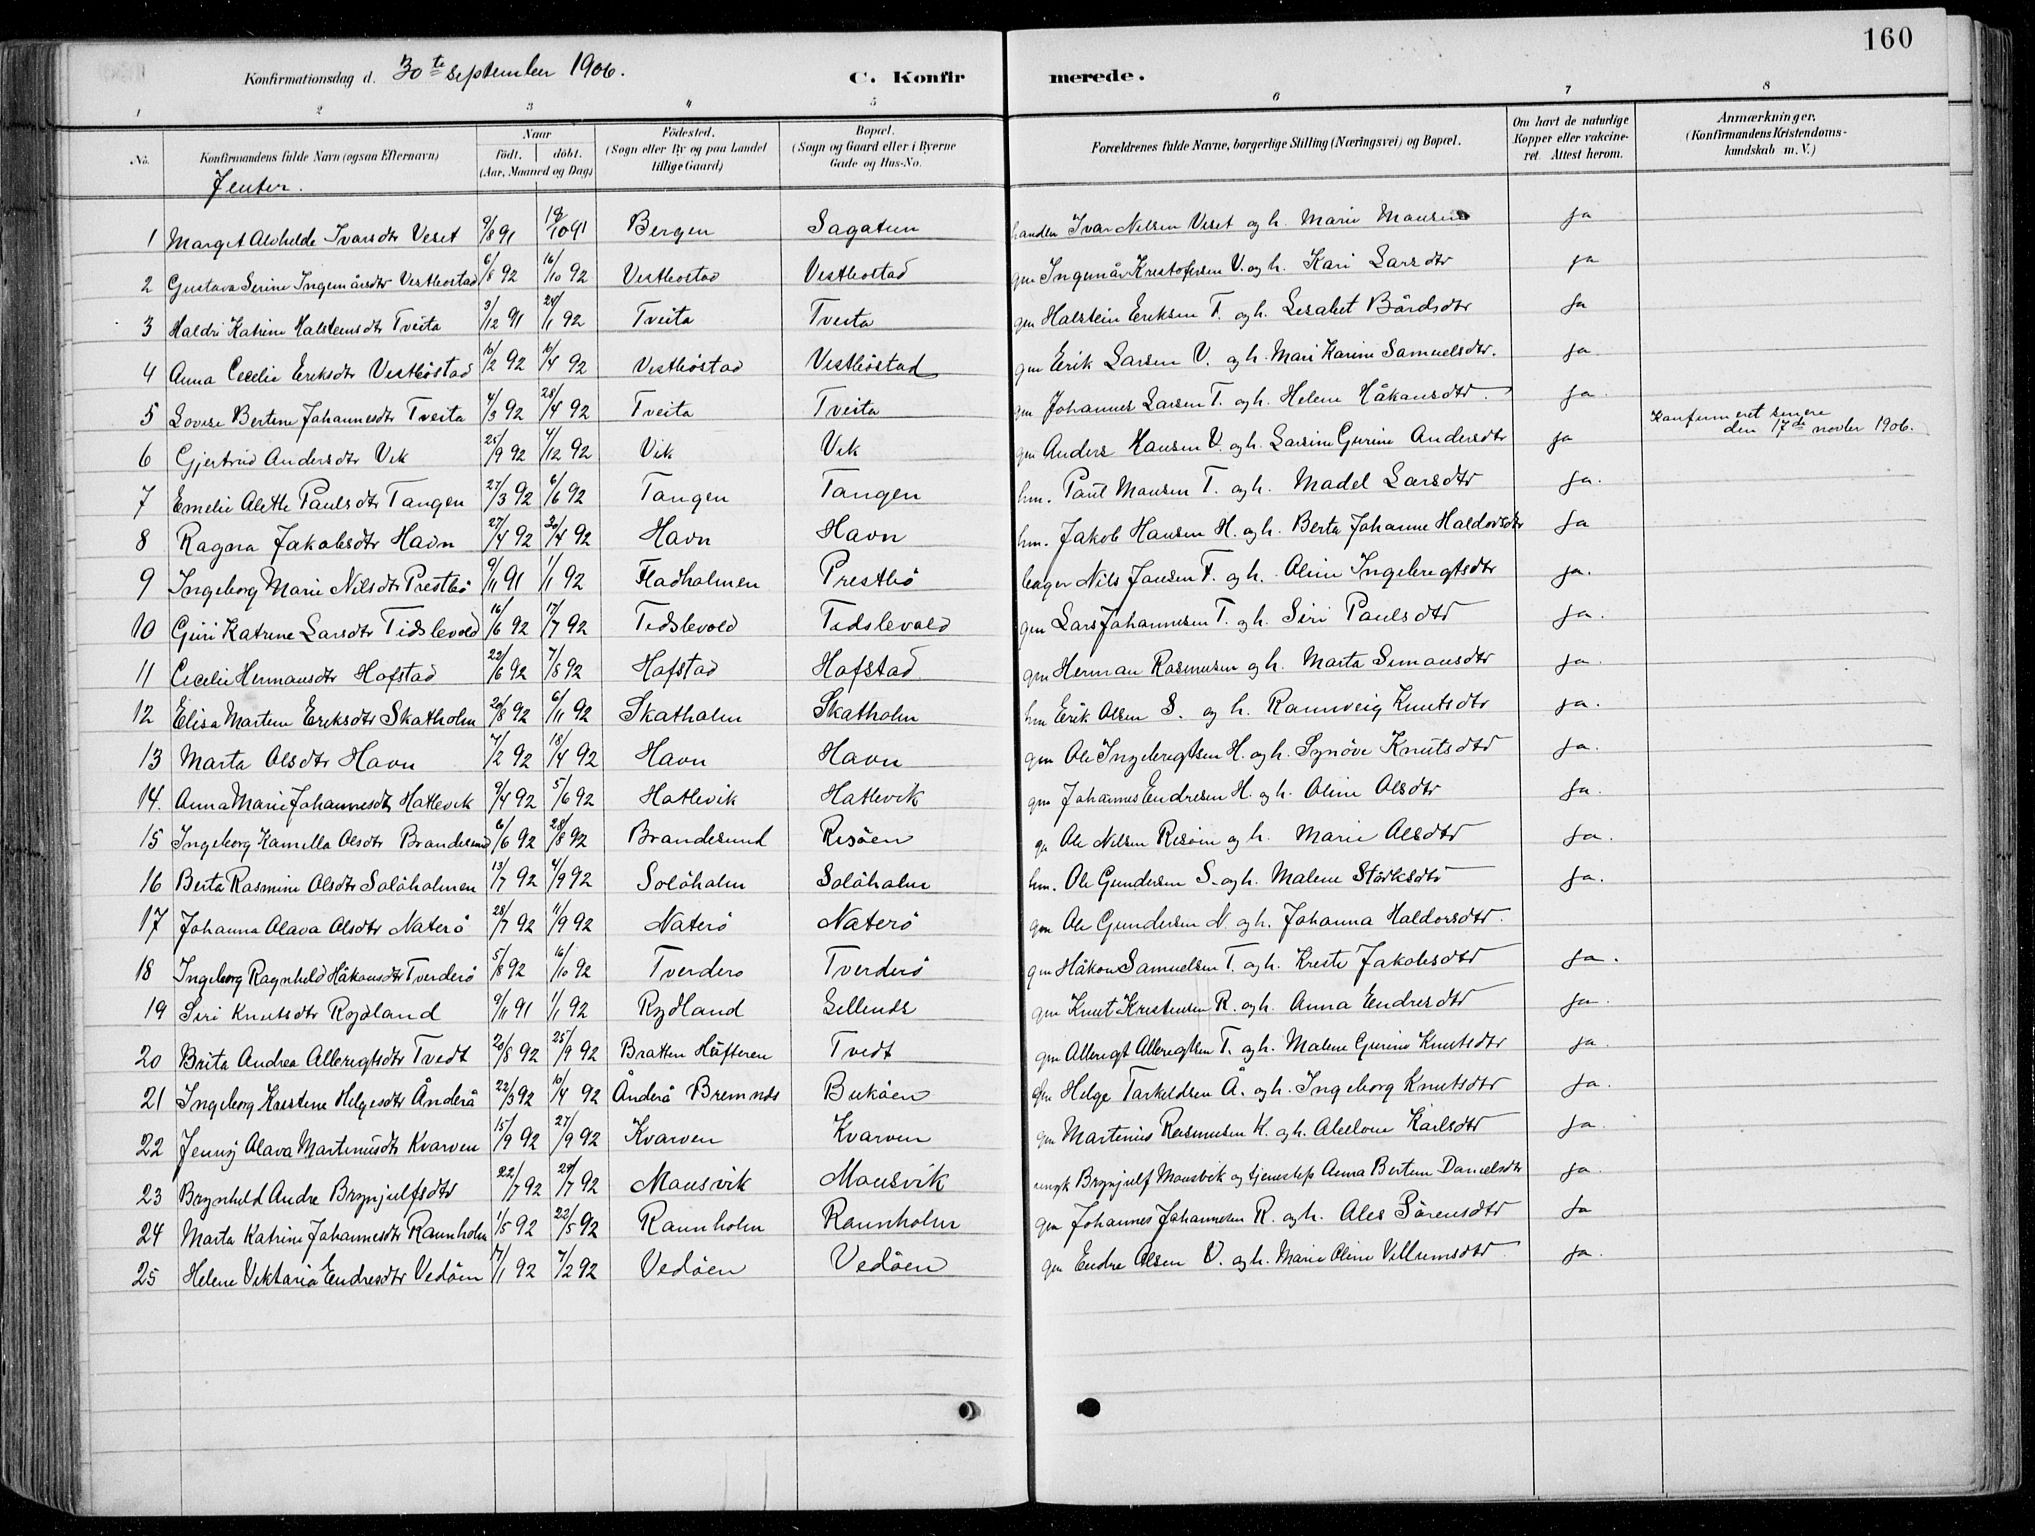 160
Konfirmationsdag d. 30te september 1906. C. Konfirmerede.
1 2 3 4 5 6 7 8
No. Konfirmandens fulde Navn (ogsaa Efternavn) Naar födt. döbt. (Aar, Maaned og Dag) Födested. (Sogn eller By og paa Landet tillige Gaard) Bopæl. (Sogn og Gaard eller i Byerne Gade og Hus-No. Forældrenes fulde Navne, borgerlige Stilling (Næringsvei) og Bopæl. Om havt de naturlige Kopper eller vakcineret. Attest herom. Anmærkninger. (Konfirmandens Kristendomskundskab m. V.)
Jenter.
1 Margit Alvhilde Ivarsdtr Veset 9/8 91 18/10 91 Bergen Sagatun handler Ivar Nilsen Veset og h. Marie Monsen ja
2 Gustava Serine Ingemårsdtr Vestbostad 6/8 92 16/10 92 Vestbostad Vestbostad gm Ingemår Kristofersen V. og h. Kari Larsdtr ja
3 Haldri Katrine Halsteinsdtr Tveita 3/12 91 24/1 92 Tveita Tveita gm Halstein Eriksen T. og h. Lisabet Bårdsdtr ja
4 Anna Cecelie Eriksdtr Vestböstad 10/2 92 10/4 92 Vestböstad Vestböstad gm Erik Larsen V. og h. Mari Karine Samuelsdtr. ja
5 Lovise Bertine Johannesdtr Tveita 4/3 92 28/4 92 Tveita Tveita gm Johannes Larsen T. og h. Helene Håkonsdtr. ja.
6 Gjertrud Andersdtr Vik 25/9 92 4/12 92 Vik Vik gm Anders Hansen V. og h. Larsine Gurine Andersdtr ja Konfirmeret senere den 17de novbr 1906.
7 Emelie Alette Paulsdtr Tangen 27/3 92 6/6 92 Tangen Tangen hm. Paul Monsen T. og h. Madel Larsdtr ja.
8 Ragna Jakobsdtr Havn 27/4 92 30/4 92 Havn Havn hm. Jakob Hansen H. og h. Berta Johanne Haldorsdtr ja
9 Ingeborg Marie Nilsdtr Prestbö 9/11 91 1/1 92 Fladholmen Prestbö bager Nils Jansen F. og h. Oline Ingebregtsdtr ja.
10 Guri Katrine Larsdtr Tidslevold 16/6 92 17/7 92 Tidslevold Tidslevold gm Lars Johannesen T. og h. Siri Paulsdtr ja.
11 Cecelie Hermansdtr Hofstad 22/6 92 7/8 92 Hofstad Hofstad gm Herman Rasmusen og h. Marta Simonsdtr ja.
12 Elisa Martine Eriksdtr Skatholm 20/8 92 6/11 92 Skatholm Skatholm hm Erik Olsen S. og h. Rannveig Knutsdtr ja.
13 Marta Olsdtr Havn 7/2 92 18/4 92 Havn Havn gm Ole Ingebregtsen H. og h. Synöve Knutsdtr ja.
14. Anna Marie Johannesdtr Hatlevik 9/4 92 5/6 92 Hatlevik Hatlevik gm Johannes Endresen H. og h. Oline Olsdtr ja.
15 Ingeborg Kamilla Olsdtr Brandesund 6/6 92 28/8 92 Brandesund Risöen gm Ole Nilsen Risöen og h. Marie Olsdtr ja.
16 Berta Rasmine Olsdtr Solöholmen 13/7 92 4/9 92 Solöholm Solöholm hm. Ole Gundersen S. og h. Malene Störksdtr ja.
17 Johanna Olava Olsdtr Naterö 28/7 92 11/9 92 Naterö Naterö gm Ole Gundersen N. og h. Johanna Haldorsdtr.
18 Ingeborg Ragnhild Håkonsdtr Tverderö 5/8 92 16/10 92 Tverdero Tverderö gm Håkon Samuelsen T. og h. Kresti Jakobsdtr ja.
19 Siri Knutsdtr Rydland 9/11 91 1/1 92 Rydland gm Knut Kristensen R. og h. Anna Endresdtr ja.
20 Brita Andrea Alleregtsdtr Tvedt 20/8 92 25/9 92 Bratten Hufteren Tvedt gm Alleregt Alleregtsen T. og h. Malene Gurine Knutsdtr ja.
21 Ingeborg Kristine Helgesdtr Ånderå 22/3 92 10/4 92 Ånderå Bremnes Buköen gm Helge Torkeldsen Å. og h. Ingeborg Knutsdtr ja.
22 Jenny Olava Martinusdtr Kvarven 15/9 92 27/9 92 Kvarven Kvarven gm Martinius Rasmusen K. og h. Karlsdtr ja.
23 Brynhild Andre Brynjulfsdtr 22/7 92 29/7 92 Monsvik Monsvik ungk Brynjulf Monsvik og tjenestep Anna Bertine Danielsdtr ja.
24 Marta Katrine Johannesdtr Rannholm 1/5 92 22/5 92 Rannholm Rannholm gm Johannes Johannesen R. og h. Ales Sörensdtr ja
25 Helene Viktaria Endresdtr Vedöen 7/1 92 7/2 92 Vedöen Vedöen gm Endre Olsen V. og h. Marie Oline Villumsdtr. ja.